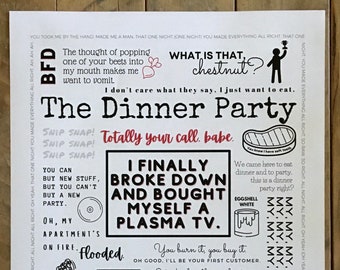 YOU TOOK ME BY THE HAND, MADE ME A MAN, THAT ONE NIGHT (ONE NIGHT) YOU MADE EVERYTHING ALL RIGHT
BFD
The thought of popping
one of your beets into
my mouth makes me
want to vomit.
WHAT IS THAT,
chestnut?
I don't care what they say, I just want to eat.
The Dinner Party
SNIP SNAP!
SNIP SNAP!
SNIP SNAP!
Totally your call, babe.
YOU CAN
BUY NEW STUFF,
BUT YOU CAN'T
BUY A NEW
PARTY.
I FINALLY
BROKE DOWN
AND BOUGHT
MYSELF A
PLASMA TV.
We came here to eat
dinner and to party,
this is a dinner
party right?
EGGSHELL
WHITE
OH, MY
APARTMENT'S
ON FIRE.
Flooded.
You burn it, you buy it.
OH GOOD, I'LL BE YOUR FIRST CUSTOMER.